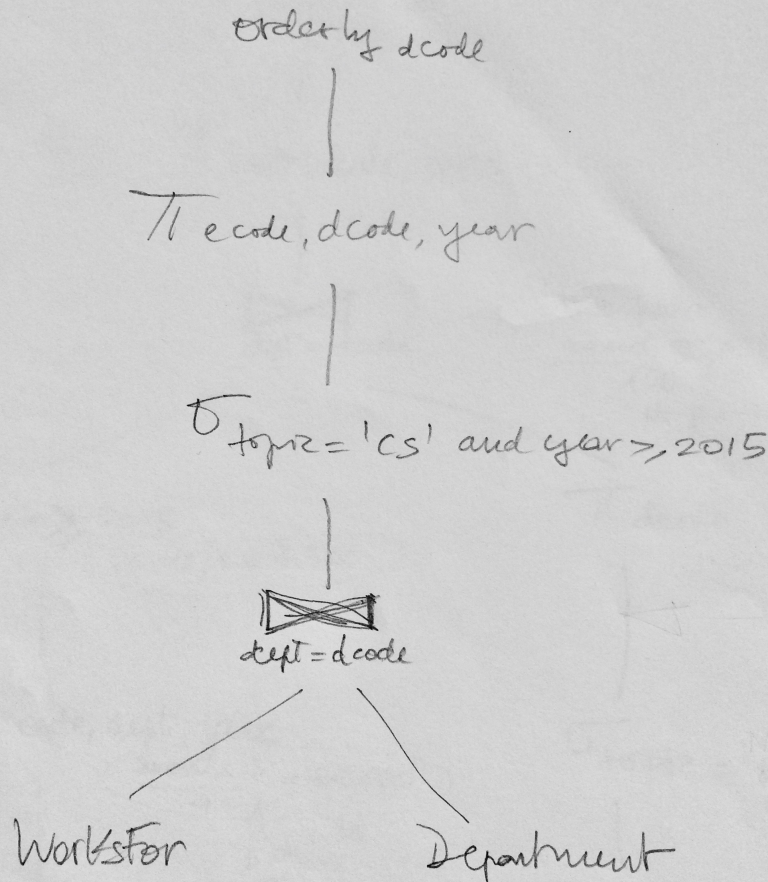 order by dcode
π ecode, dcode, year
σ topic = 'CS' and year >, 2015
dept = dcode
WorksFor
Department